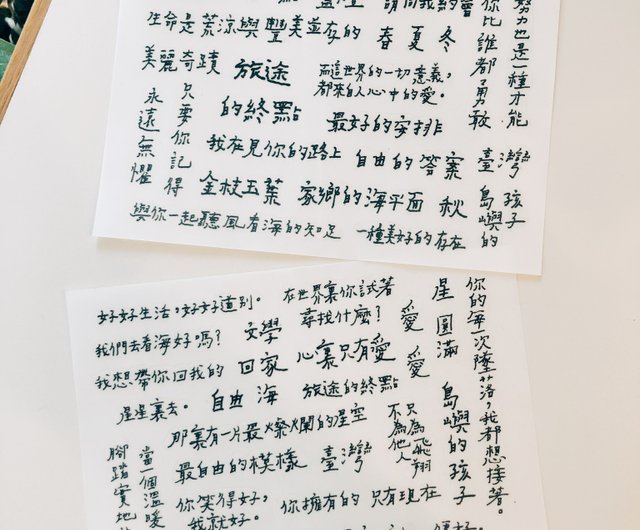 請問我約會
生命是荒涼與豐美並存的
春夏冬
美麗奇蹟
旅途
的終點
而這世界的一切意義,
都來自人心中的愛。
你比誰都勇敢
努力也是一種才能
只要你記得
永遠無懼
最好的安排
我在見你的路上
自由的答案
臺灣
島嶼的孩子
金枝玉葉
家鄉的海平面
秋
與你一起聽風看海的知足
一種美好的存在
好好生活,好好道別。
在世界裏你試著
尋找什麼?
星
圓滿
你的每一次墜落,我都想接著。
我們去看海好嗎?
文學
愛
我想帶你回我的
星星裏去。
回家
心裏只有愛
愛
自由
海
旅途的終點
島嶼的孩子
那裏有一片最燦爛的星空
不為他人
只為飛翔
最自由的模樣
臺灣
當一個溫暖
腳踏實地
你笑得好,
我就好。
你擁有的
只有現在